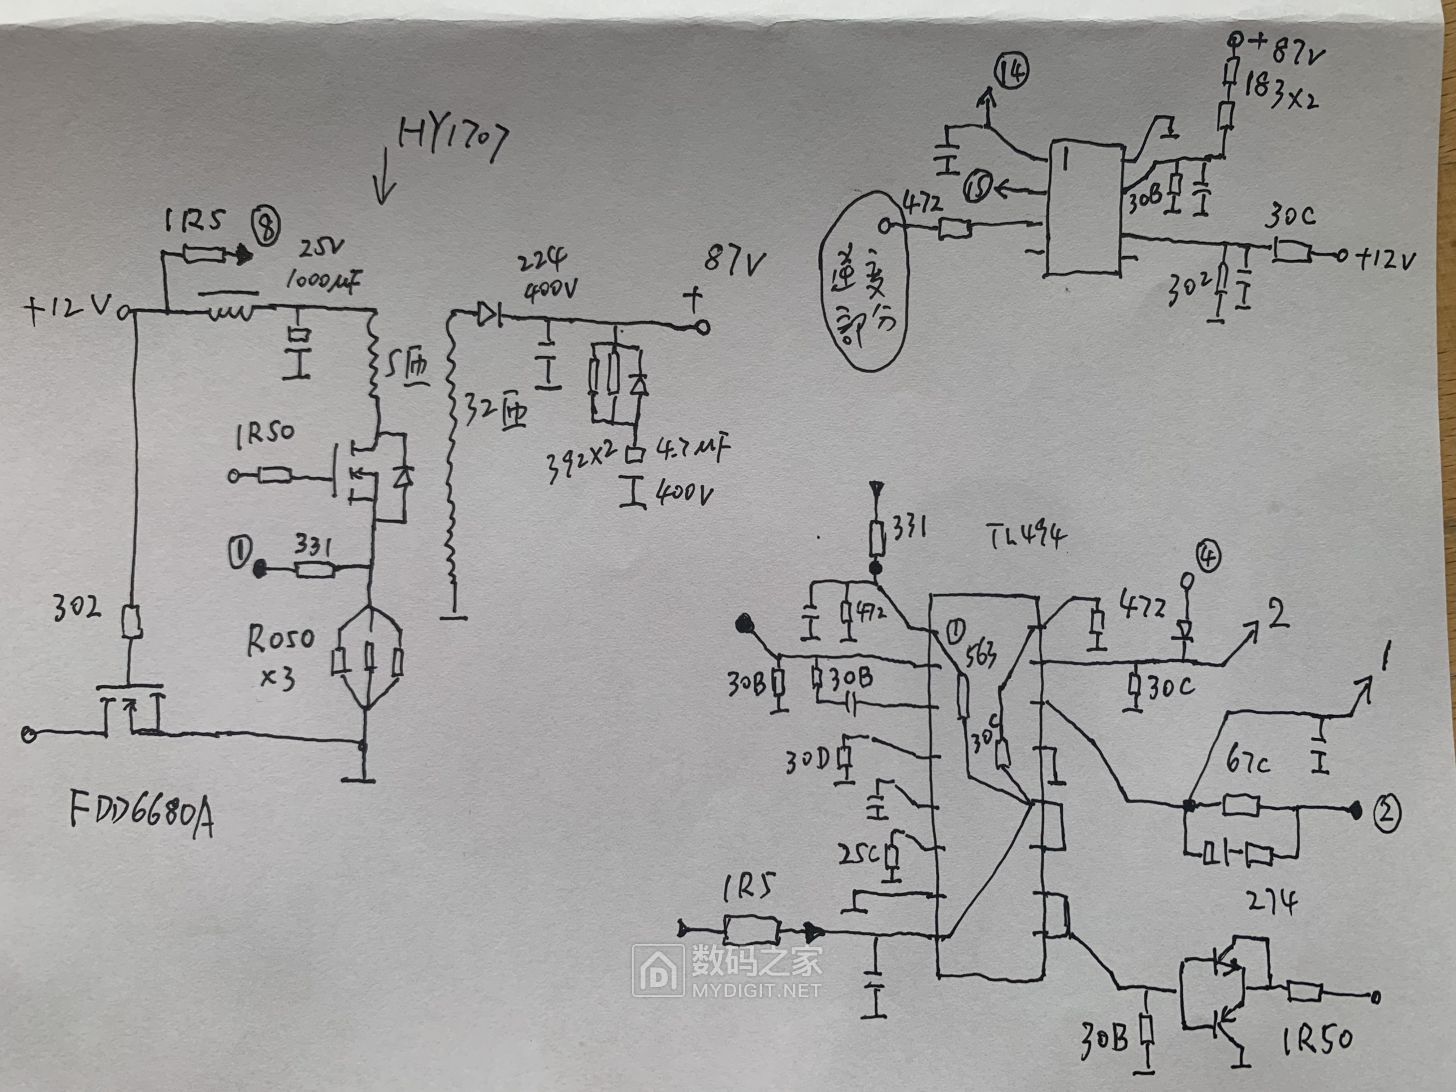 HY1707
1R5
⑧
25V
1000μF
+12V
5匝
32匝
224
400V
87V
+
392×2
4.7μF
400V
1R50
①
331
302
R050
×3
FDD6680A
⑭
⑮
472
逆变
部分
1
+87V
183×2
30B
30C
302
+12V
331
TL494
472
①
563
30B
30B
30C
30D
25C
1R5
472
④
2
30C
1
67C
②
274
30B
1R50
数码之家
MYDIGIT.NET